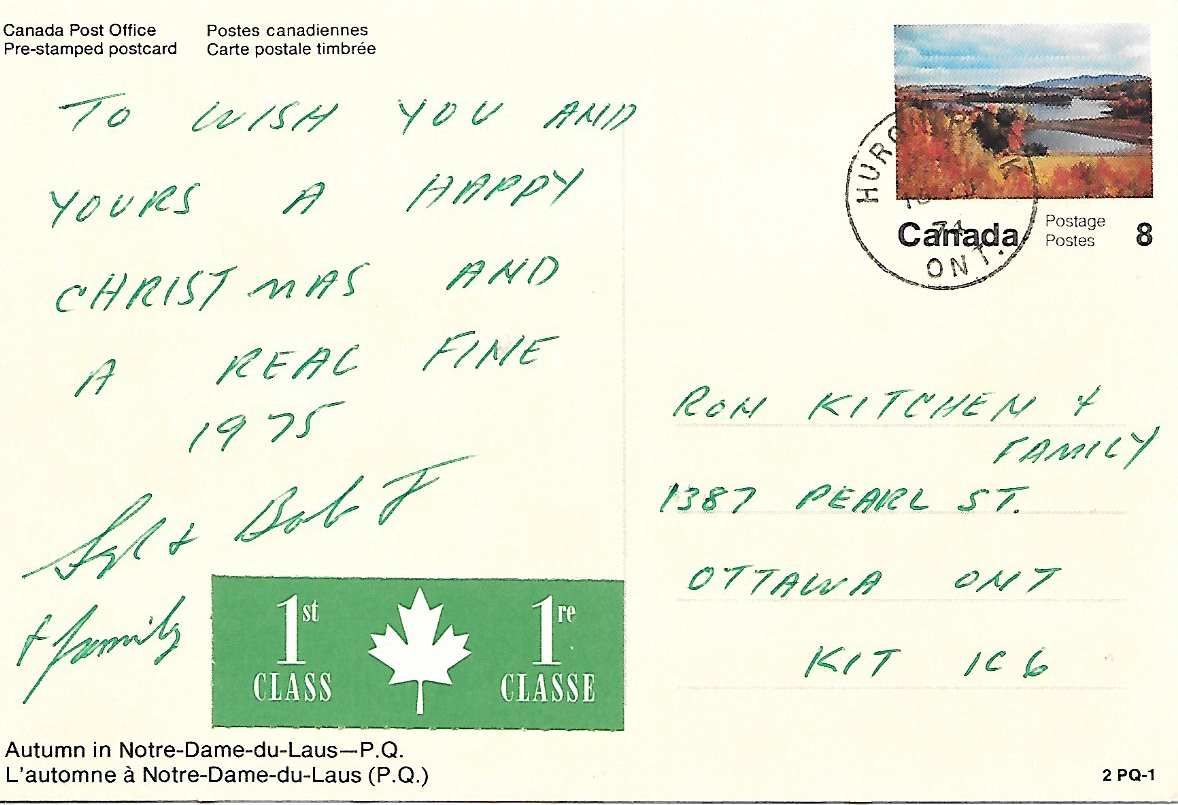 Canada Post Office
Pre-stamped postcard
Postes canadiennes
Carte postale timbrée
TO WISH YOU AND
YOURS A HAPPY
CHRISTMAS AND
A REAL FINE
1975
& Bob J
+ family
1st
CLASS
1re
CLASSE
Autumn in Notre-Dame-du-Laus—P.Q.
L'automne à Notre-Dame-du-Laus (P.Q.)
HURON
74
ONT.
Canada
Postage
Postes
8
RON KITCHEN &
FAMILY
1387 PEARL ST.
OTTAWA ONT
KIT 1C6
2 PQ-1